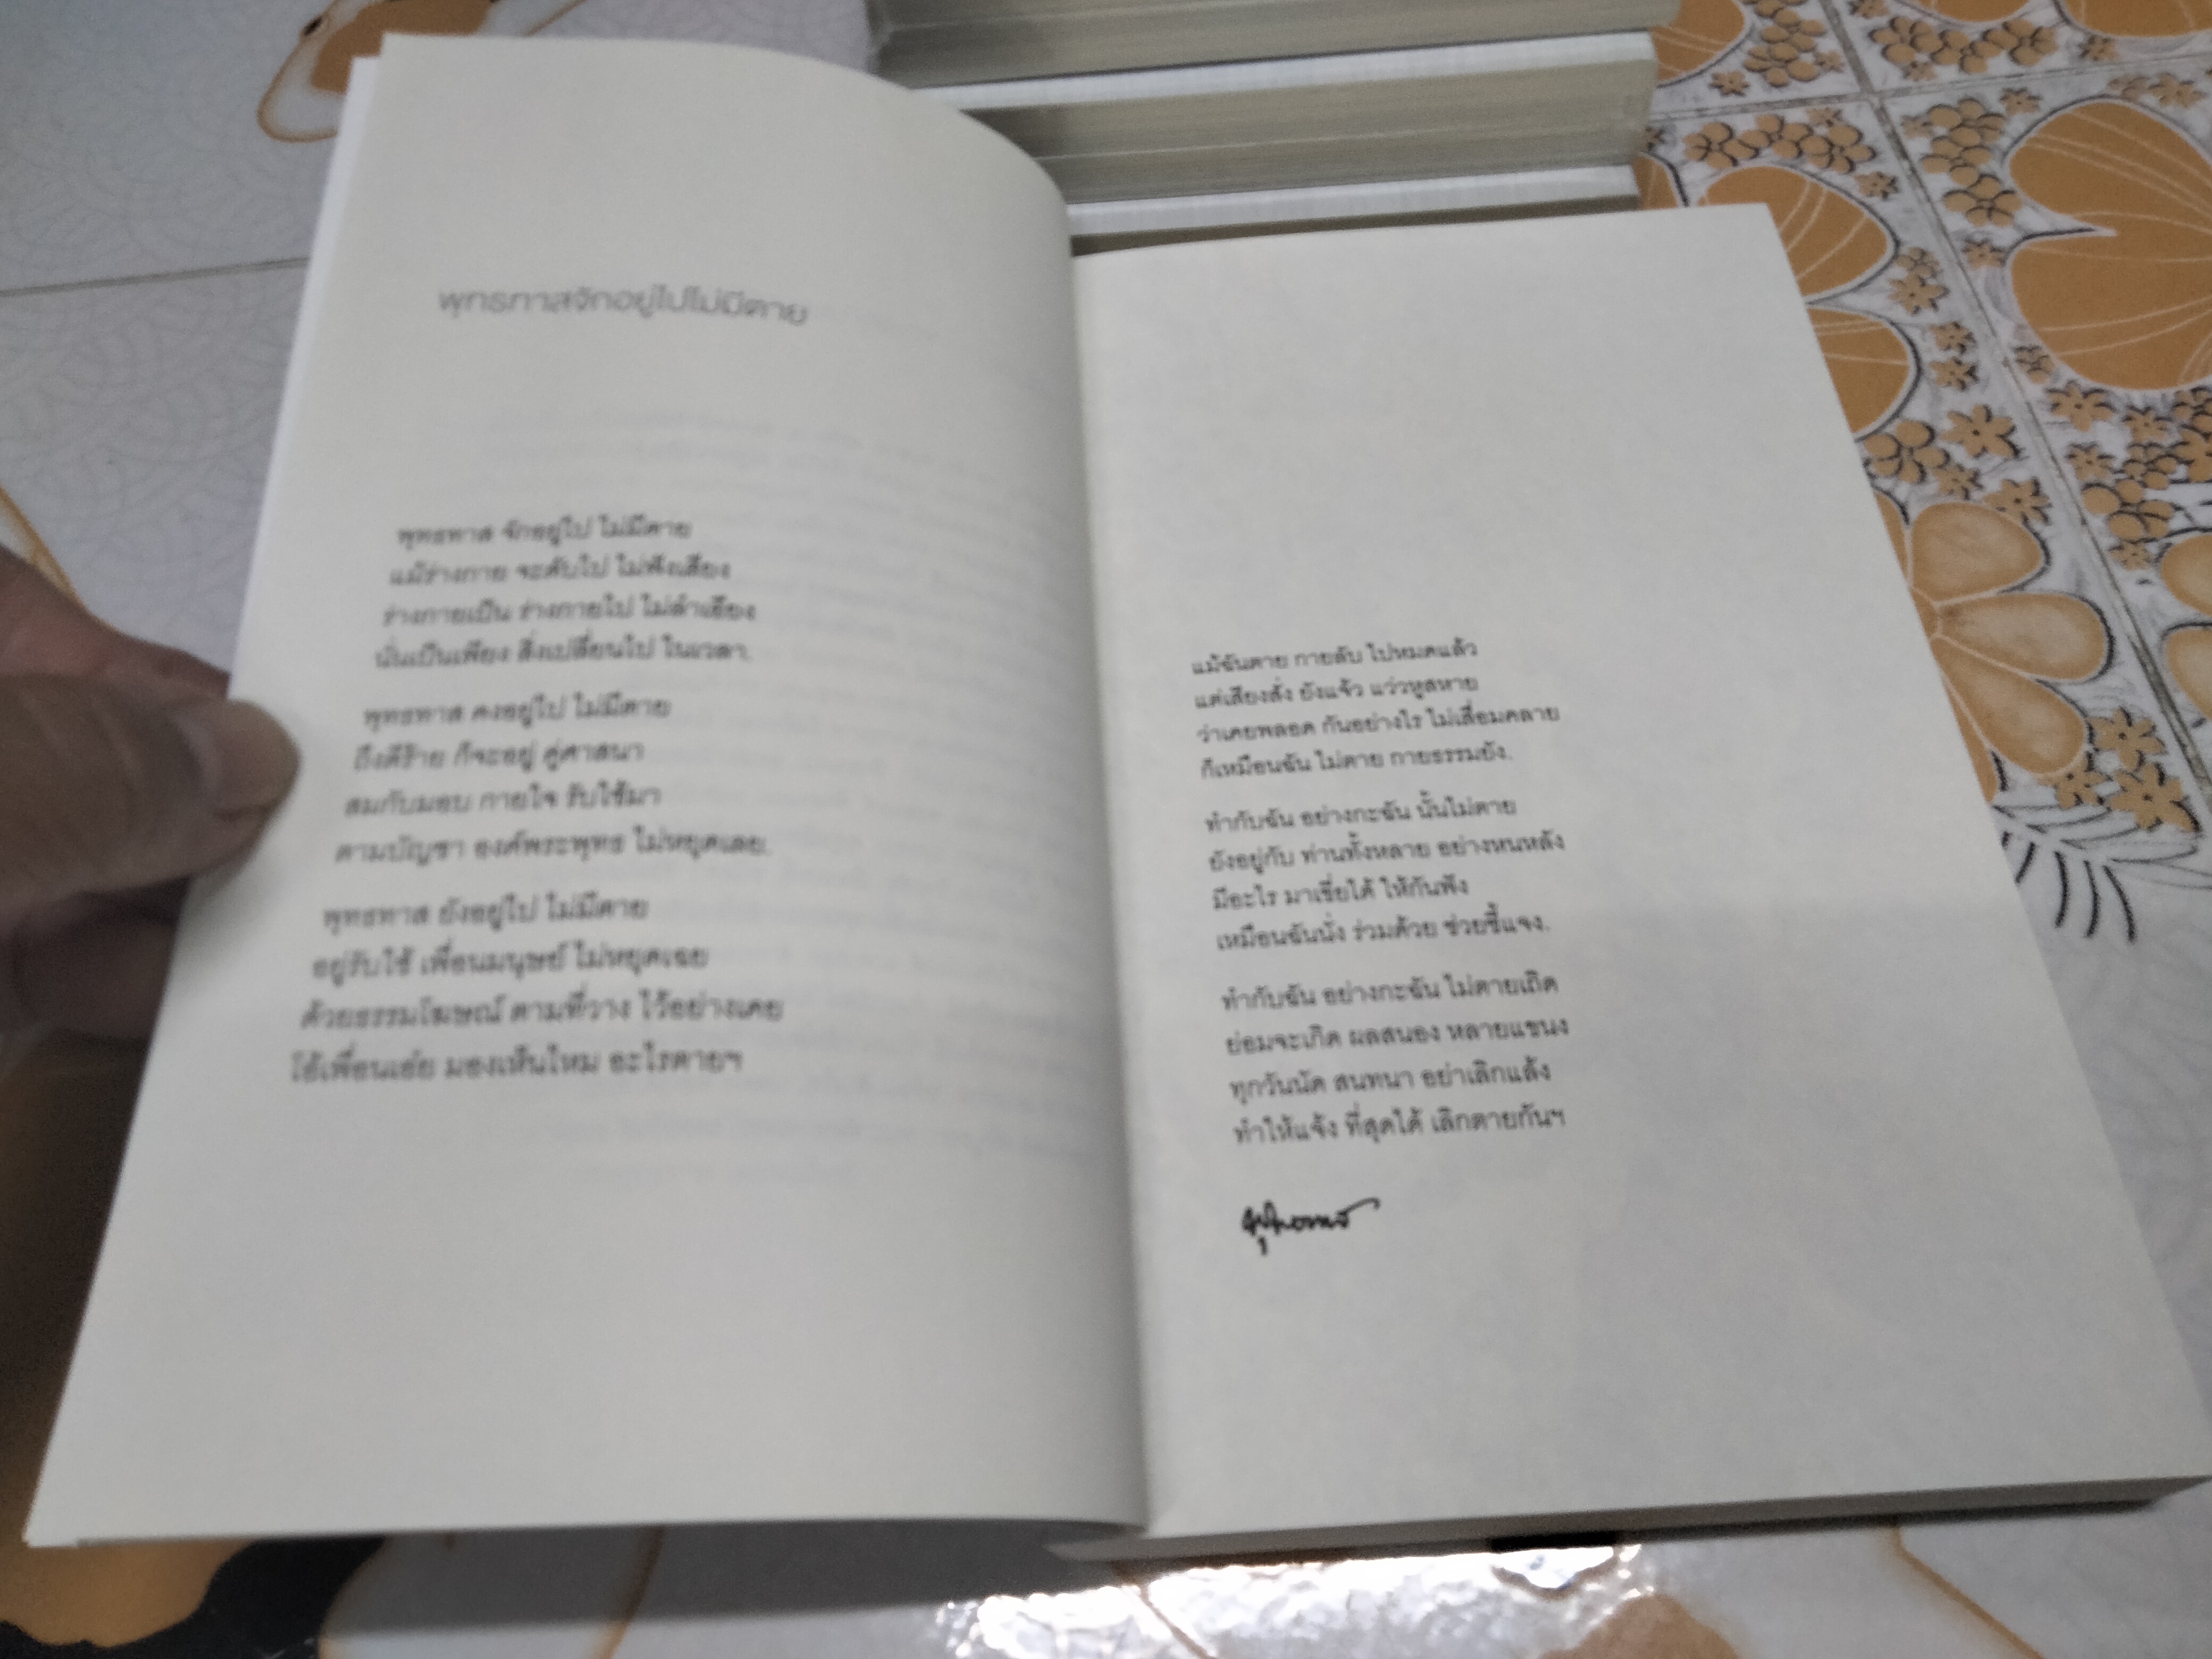 พุทธทาสจักอยู่ไปไม่มีตาย
พุทธทาส จักอยู่ไป ไม่มีตาย
แม้ร่างกาย จะดับไป ไม่ฟังเสียง
ร่างกายเป็น ร่างกายไป ไม่ลำเอียง
นั่นเป็นเพียง สิ่งเปลี่ยนไป ในเวลา.
พุทธทาส คงอยู่ไป ไม่มีตาย
ถึงดีร้าย ก็จะอยู่ คู่ศาสนา
สมกับมอบ กายใจ รับใช้มา
ตามบัญชา องค์พระพุทธ ไม่หยุดเลย.
พุทธทาส ยังอยู่ไป ไม่มีตาย
อยู่รับใช้ เพื่อนมนุษย์ ไม่หยุดเฉย
ด้วยธรรมโฆษณ์ ตามที่วาง ไว้อย่างเคย
โอ้เพื่อนเอ๋ย มองเห็นไหม อะไรตายฯ
แม้ฉันตาย กายลับ ไปหมดแล้ว
แต่เสียงสั่ง ยังแจ้ว แว่วหูสหาย
ว่าเคยพลอด กันอย่างไร ไม่เสื่อมคลาย
ก็เหมือนฉัน ไม่ตาย กายธรรมยัง.
ทำกับฉัน อย่างกะฉัน นั้นไม่ตาย
ยังอยู่กับ ท่านทั้งหลาย อย่างหนหลัง
มีอะไร มาเขี่ยไค้ ให้กันฟัง
เหมือนฉันนั่ง ร่วมด้วย ช่วยชี้แจง.
ทำกับฉัน อย่างกะฉัน ไม่ตายเถิด
ย่อมจะเกิด ผลสนอง หลายแขนง
ทุกวันนัด สนทนา อย่าเลิกแล้ง
ทำให้แจ้ง ที่สุดได้ เลิกตายกันฯ